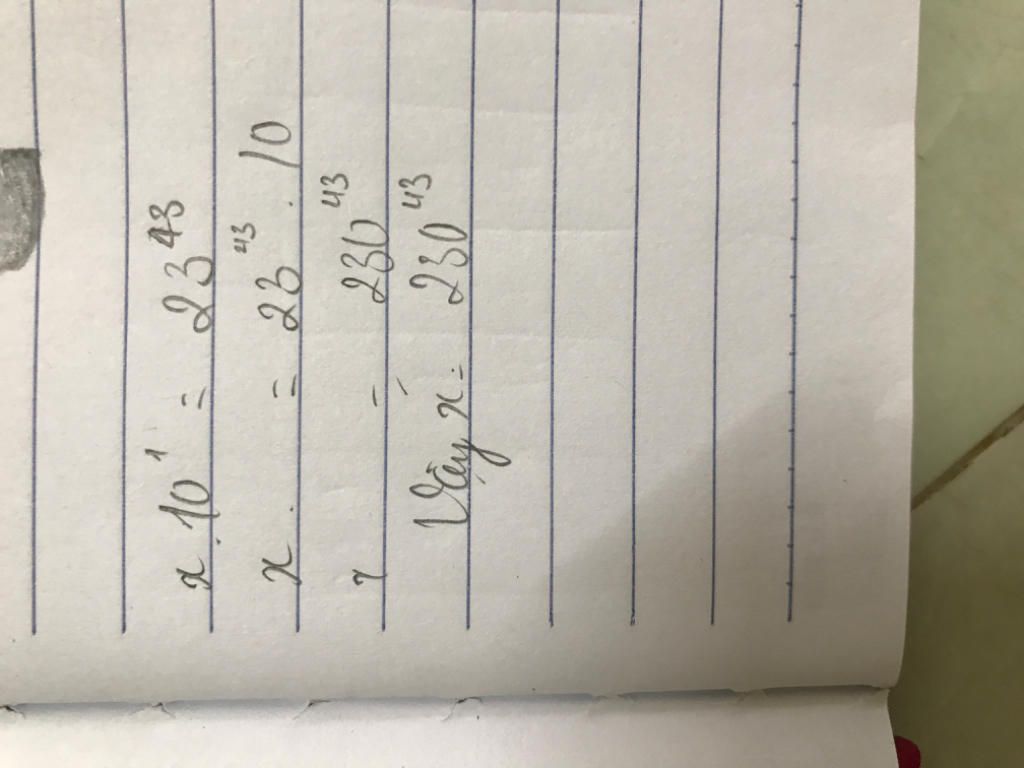 x . 10¹ = 23⁴³
x = 23⁴³ . 10
x = 230⁴³
Vậy x = 230⁴³